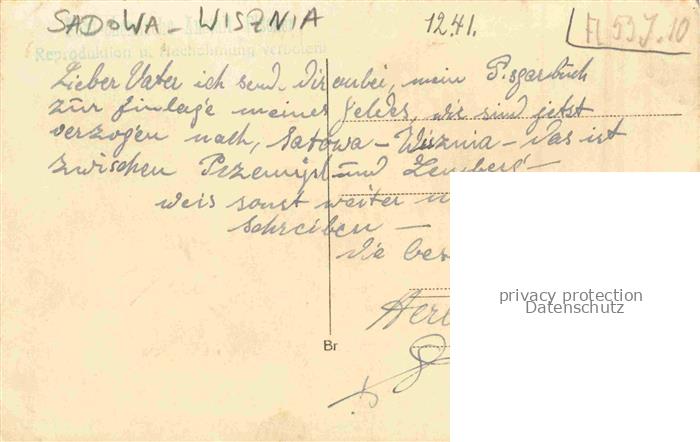 SADOWA - WISZNIA 12.41.
Reproduktion u. Nachahmung verboten!
Lieber Vater ich send. Dir anbei, mein P.sparbuch
zur Einlage meines Geldes, wir sind jetzt
verzogen nach, Satowa - Wisznia - das ist
zwischen Przemysl und Lemberg -
weis sonst weiter
schreiben -
die
Br
privacy protection
Datenschutz